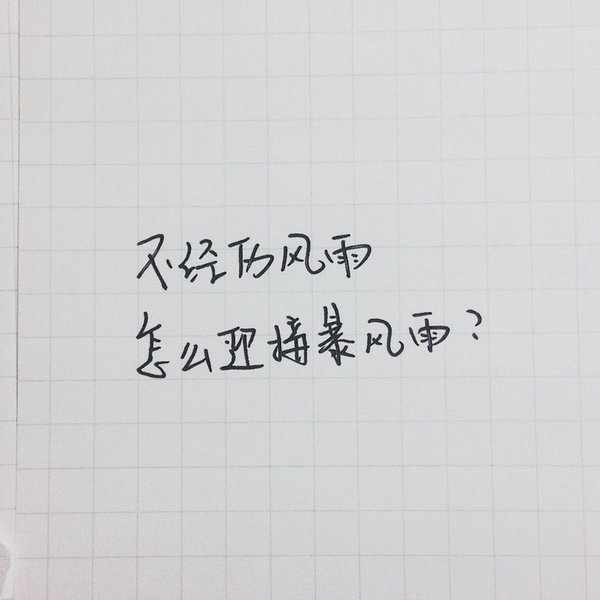 不经历风雨
怎么迎接暴风雨？